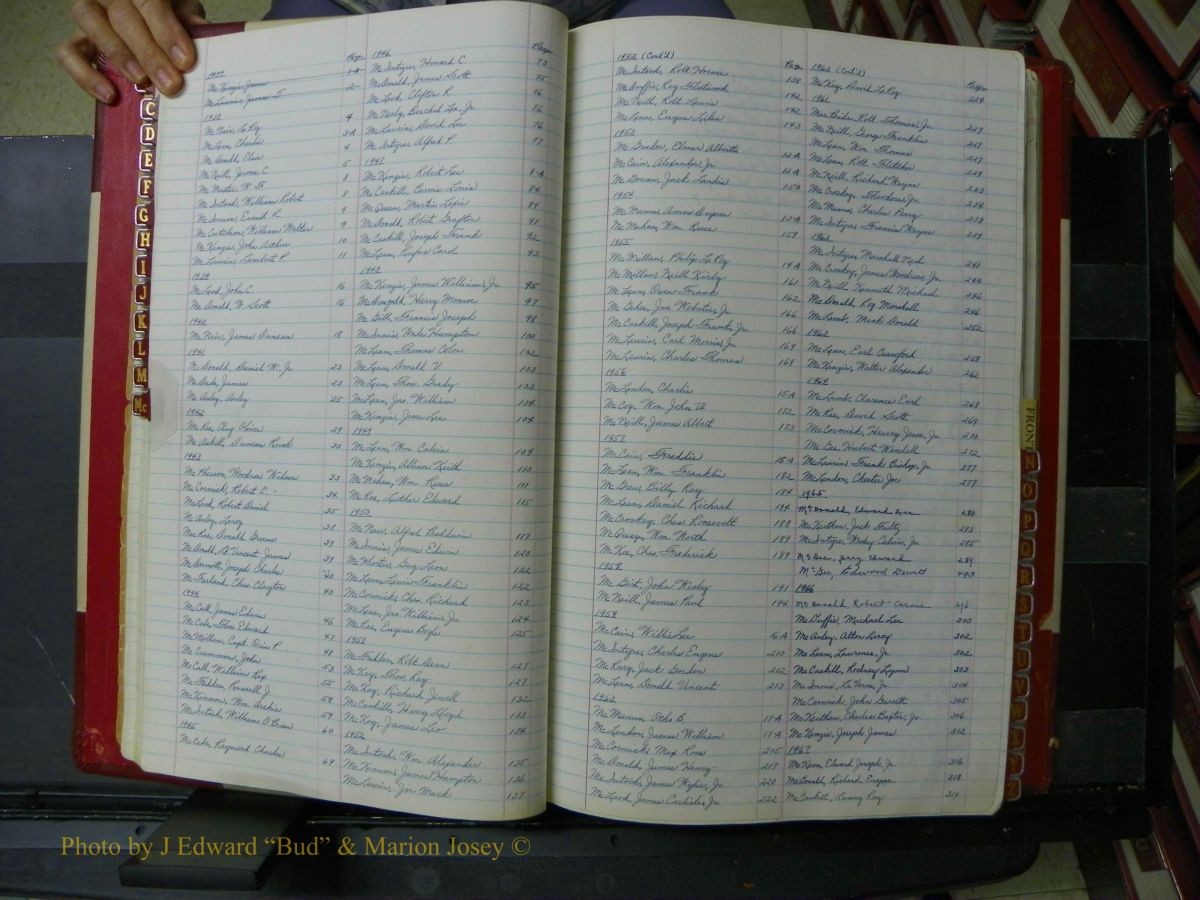 1937
Page
McKenzie, James 1-A
McLaurin, James F. 2
1938
McNair, LeRoy 4
McLean, Charlie 3A
McDonald, Clara 4
McNeill, Jerome C. 5
McMaster, W. F. 8
McIntosh, William Robert 8
McInnis, Ernest R. 9
McCutcheon, William Walter 9
McKenzie, John Arthur 10
McLaurin, Lambert P. 11
1939
McLeod, John C. 16
McDonald, W. Scott 16
1940
McNeir, James Duncan 18
1941
McDonald, Daniel W. Jr. 23
McDade, James 23
McAuley, Auley 25
1942
McRae, Clay Oliver 29
McAskill, Duncan Rush 30
1943
McPherson, Woodrow Wilson 33
McCormick, Robert C. 34
McLeod, Robert Daniel 35
McAuley, Leroy 38
McRae, Donald Greene 39
McDonald, St. Vincent James 39
McDermott, Joseph Charles 40
McFarland, Chas Clayton 40
1944
McCall, James Edwin 46
McCabe, Thos Edward 47
McMillan, Capt. Orin P. 49
McCrummen, John 53
McCall, William Rex 55
McFadden, Russell J. 58
McKinnon, Wm. Archie 59
McIntosh, William O'Brian 60
1945
McCabe, Raymond Charles 69
1946
Page
McIntyre, Howard C. 73
McDonald, James Scott 75
McLeod, Clifton R. 76
McNeely, Beechel Lee, Jr. 76
McLaurin, David Lee 76
McIntyre, Alfred P. 87
1947
McKenzie, Robert Lee 8-A
McCaskill, Burnie Lonia 84
McQueen, Martin Lofie 89
McDonald, Robert Grafton 91
McCaskill, Joseph Frank 92
McLean, Rufus Carol 93
1948
McKenzie, James Williams, Jr. 95
McDougald, Harry Monroe 97
McGill, Francis Joseph 98
McInnis, Wade Hampton 100
McLean, Thomas Colon 102
McLean, Donald V. 103
McLean, Thos. Grady 103
McLean, Jno William 104
McKenzie, Jesse Lee 104
1949
McLean, Wm. Calvin 109
McKenzie, Allison Keith 110
McMahan, Wm. Reese 111
McRae, Luther Edward 115
1950
McNair, Alfred Baldwin 117
McInnis, James Edwin 120
McWhorter, Guy Leon 122
McLean, Lewis Franklin 122
McCormick, Chas. Richard 123
McLean, Jno William, Jr. 124
McRae, Eugene Boyle 125
1951
McFadden, Robt Dean 127
McKay, Thos Ray 127
McKay, Richard Jewell 132
McCaskill, Harry Lloyd 133
McKoy, James Leo 134
1952
McIntosh, Wm. Alexander 135
McKinnon, James Hampton 136
McLaurin, Joe Mack 137
1952 (Cont'd)
Page
McIntosh, Robt Horace 138
McDuffie, Roy Fleetwood 142
McNeill, Robt Lewis 142
McLean, Eugene Liles 143
1953
McGruder, Elmer Alberth 12 A
McCain, Alexander, Jr. 12 A
McGowan, Jack Landis 150
1954
McManus, Amos Dupree 13 A
McMahan, Wm. Reece 159
1955
McMillan, Philip LeRoy 14 A
McMillan, Neill Kirby 161
McLean, Owen Frank 162
McGehee, Jno Webster, Jr. 166
McCaskill, Joseph Frank, Jr. 166
McLaurin, Carl Morris, Jr. 169
McLaurin, Charles Thomas 169
1956
McLendon, Charlie 15 A
McCoy, Wm. John III 172
McNeill, James Albert 173
1957
McCain, Freddie 15 A
McLean, Wm. Franklin 182
McGrew, Billy Ray 184
McLean, Daniel Richard 184
McCroskey, Chas Roosevelt 188
McQueen, Wm. North 189
McKee, Chas. Frederick 189
1958
McGirt, John Wesley 191
McNeill, James Paul 194
1959
McCain, Willie Lee 16 A
McIntyre, Charles Eugene 210
McKary, Jack Gordon 212
McLean, Donald Vincent 213
1960
McManus, Otho B. 17 A
McLendon, James William 17 A
McCormick, Max Ross 215
McDonald, James Henry 217
McIntosh, James Wylie, Jr. 220
McLeod, James Carlisle, Jr. 222
1960 (Cont'd)
Pages
McKay, David LeRoy 224
1961
MacBride, Robt Thomas, Jr. 227
McNeill, George Franklin 227
McLean, Wm. Thomas 227
McLean, Robt Fletcher 229
McNeill, Richard Wayne 233
McCroskey, Theodore, Jr. 234
McManus, Charles Perry 238
McIntyre, Francis Wayne 239
1962
McIntyre, Marshall Ned 241
McCroskey, James Woodrow, Jr. 244
McNeill, Kenneth Michael 246
McDonald, Roy Marshall 246
McLamb, Mack Donald 252
1963
McLean, Earl Crawford 258
McKenzie, Walter Alexander 262
1964
McLamb, Clarence Earl 268
McRae, David Scott 269
McCormick, Harvey Jones, Jr. 270
McGee, Hubert Wendell 272
McLaurin, Frank Bishop, Jr. 277
McLendon, Chester Joe 277
1965
McDonald, Edward Lee 280
McKeithan, Jack Fulty 283
McIntyre, Wesley Calvin, Jr. 285
McGee, Jerry Edward 289
McGee, Edward Dewitt 293
1966
McDonald, Robert Carnie 296
McDuffie, Michael Lee 300
McAuley, Alton Leroy 302
McLeen, Lawrence, Jr. 302
McCaskill, Rodney Lynn 303
McInnis, La Verne, Jr. 304
McCormick, John Garrett 305
McKeithan, Charles Baxter, Jr. 306
McKenzie, Joseph James 312
1967
McKeon, Edward Joseph, Jr. 316
McDonald, Richard Eugene 318
McCaskill, Ronny Ray 319
C
D
E
F
G
H
I
J
K
L
M
Mc
FRONT
N
O
P
Q
R
S
T
U
V
W
Y
Z
Photo by J Edward “Bud” & Marion Josey ©